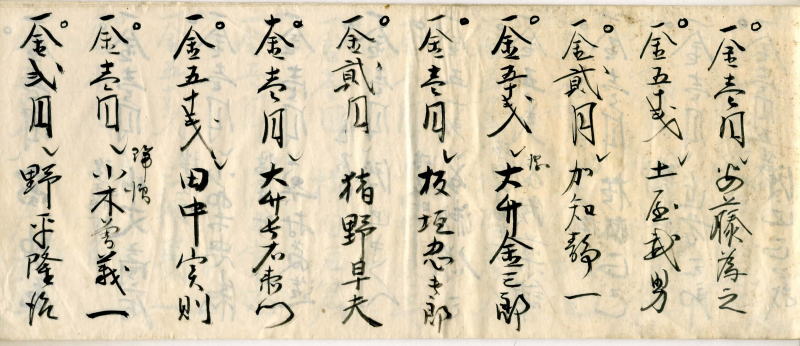 一金壱円 安藤為之
一金五十戔 土屋武男
一金貳円 加知静一
一金五十戔 大弁金三郎
一金壱円 板垣忠吉郎
一金貳円 猪野早夫
一金壱円 大弁長右衛門
一金五十戔 田中実則
一金壱円 小木曽義一
一金弐円 野平隆治